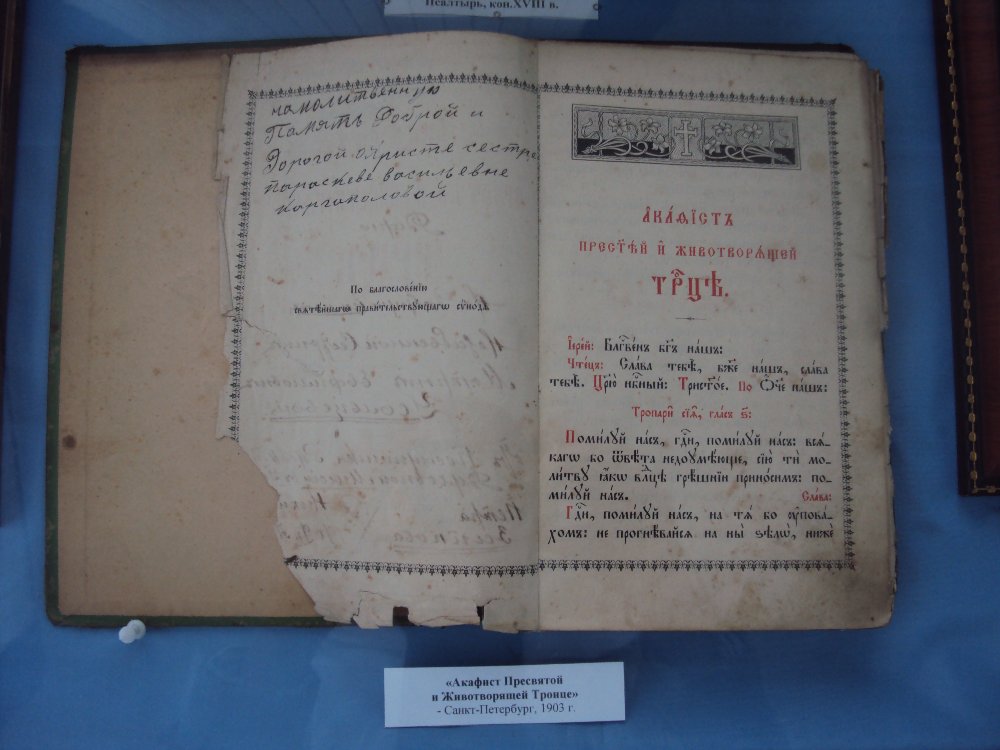 Псалтырь, кон.XVIII в.
на молитвенную
Память Доброй и
Дорогой о Христе сестре
параскеве васильевне
каргополовой
По благословенїю
свѧтѣ́йшагѡ прави́тельствꙋющагѡ сѷно́да
А҆ка́ѳїстъ
прест҃ѣ́й и҆ животворѧ́щей
трⷪ҇цѣ.
І҆ере́й: Блгⷭ҇ве́нъ бг҃ъ на́шъ:
Чте́цъ: Сла́ва тебѣ̀, бж҃е на́шъ, сла́ва
тебѣ̀. Цр҃ю̀ нбⷭ҇ный: Трист҃о́е. По Ѻ҆́ч҃е на́шъ:
Тропарѝ сїѧ̑, гла́съ ѕ҃:
Поми́лꙋй на́съ, гдⷭ҇и, поми́лꙋй на́съ: всѧ́-
кагѡ бо ѿвѣ́та недоꙋмѣ́юще, сїю̀ тѝ мо-
ли́твꙋ ꙗ҆́кѡ влⷣцѣ грѣ́шнїи прино́симъ: по-
ми́лꙋй на́съ. Сла́ва:
Гдⷭ҇и, поми́лꙋй на́съ, на тѧ́ бо ᲂу҆пова́-
хомъ: не прогнѣ́вайсѧ на ны̀ ѕѣлѡ̀, нижѐ
«Акафист Пресвятой
и Животворящей Троице»
- Санкт-Петербург, 1903 г.